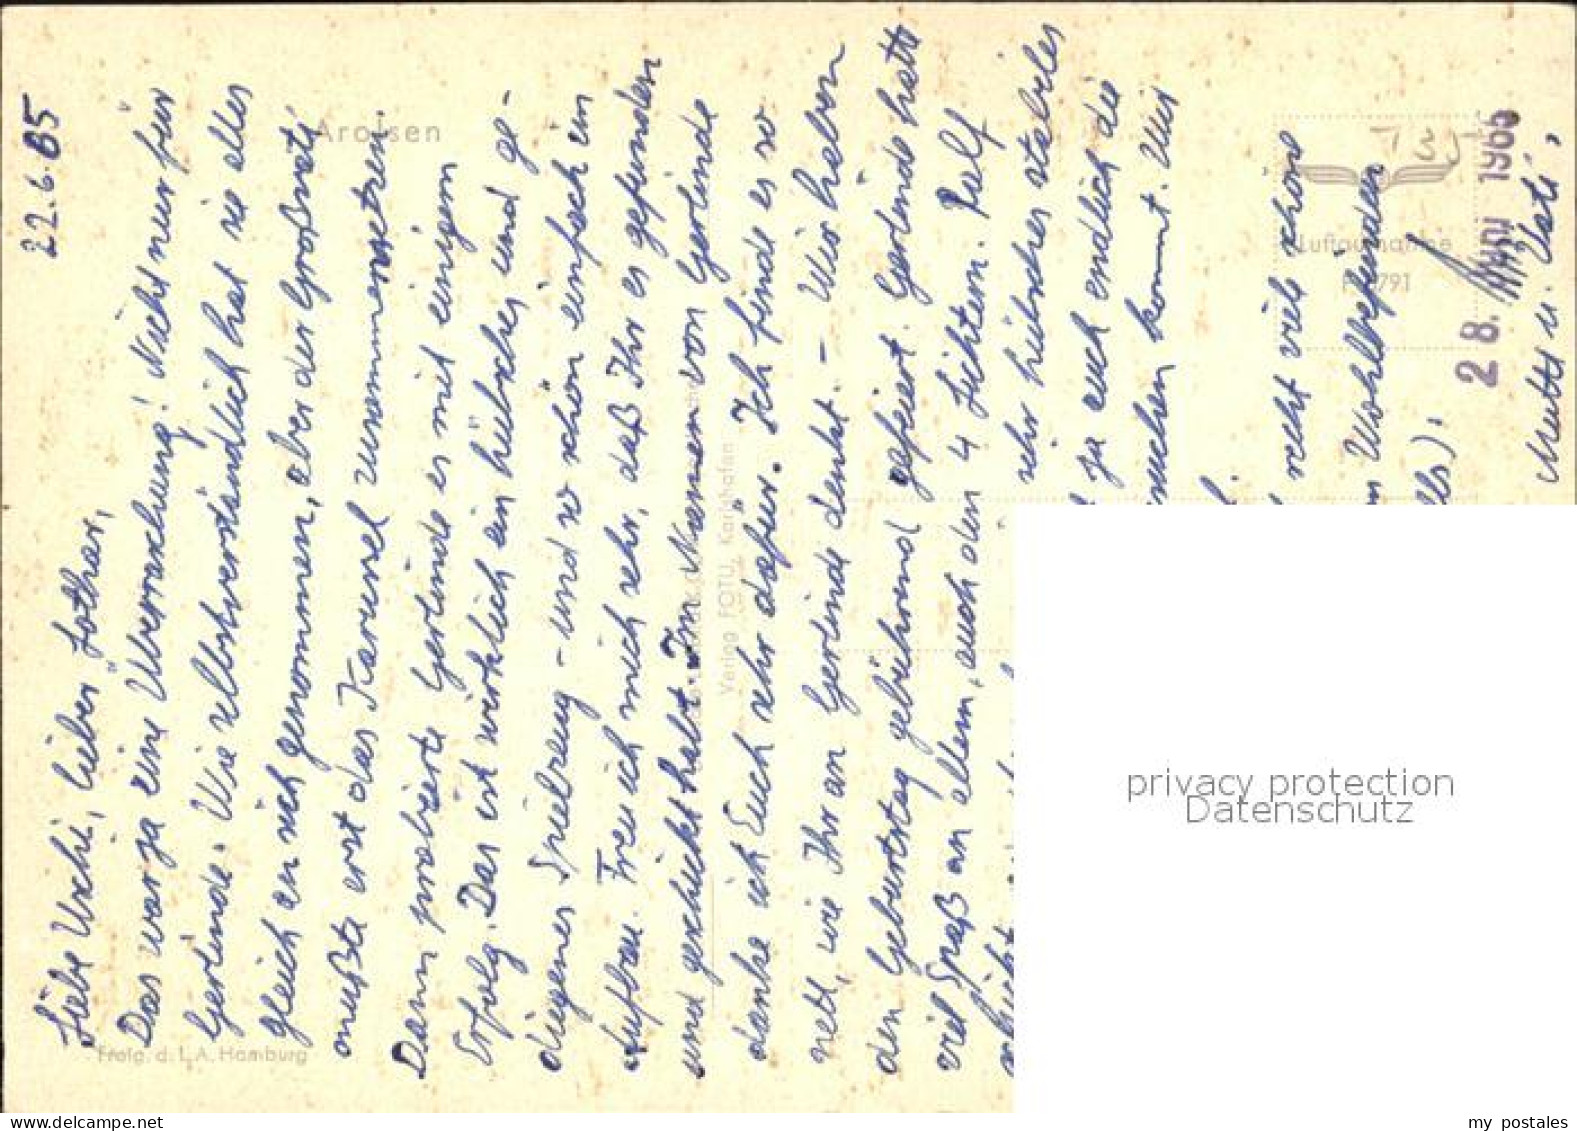 22.6.65
Liebe Uschi, lieber Lothar,
Das war ja eine Überraschung! Nicht nur für
Gerlinde. Wie selbstverständlich hat sie alles
gleich an sich genommen, aber der Großvati
mußte erst das Karussel zusammensetzen.
Dann probierte Gerlinde es mit einigem
Erfolg. Das ist wirklich ein hübsches und ge-
diegenes Spielzeug - und so schön einfach im
Aufbau. Freu ich mich sehr, daß Ihr es gefunden
und geschickt habt. Im Namen von Gerlinde
danke ich Euch sehr dafür. Ich finde es so
nett, wie Ihr an Gerlinde denkt. - Wir haben
den Geburtstag gebührend gefeiert. Gerlinde hatte
viel Spaß an allem, auch den 4 Lichtern. Rolf
schickt
sehr hübsches stabiles
ja auch endlich die
suchen kommt. Wir
recht viele schöne
Wohlbefinden
Mutti u. Vati,
Arolsen
Freig. d. L.A. Hamburg
Verlag FOTU, Karlshafen
Luftaufnahme
28. JUNI 1965
privacy protection
Datenschutz
my postales